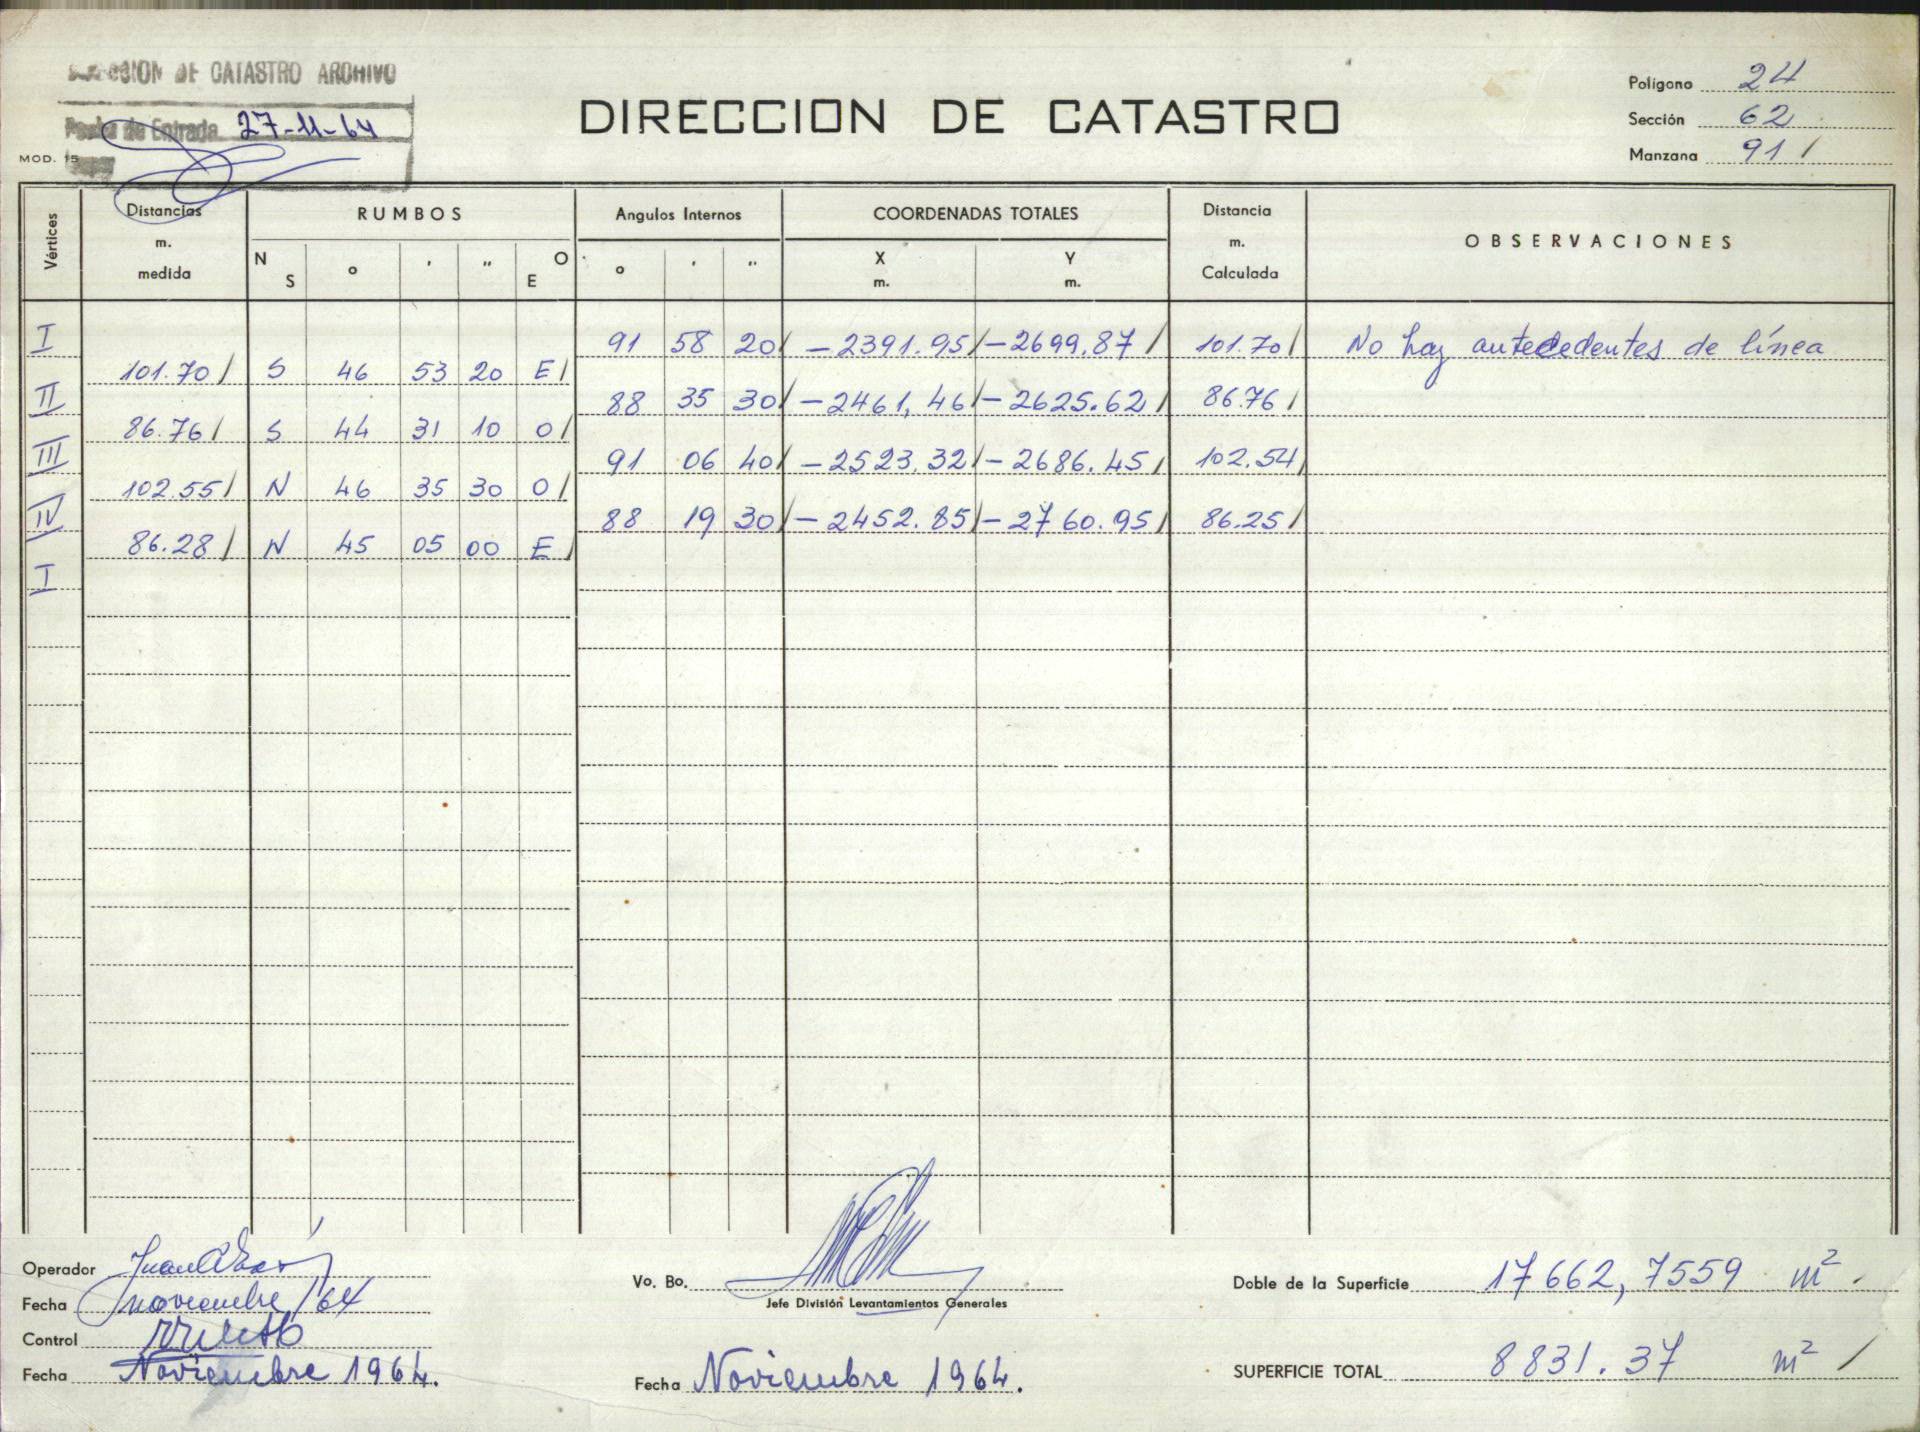 DIRECCION DE CATASTRO ARCHIVO
Fecha de Entrada 27-11-64
MOD. 15
DIRECCION DE CATASTRO
Polígono 24
Sección 62
Manzana 91 /
Vértices Distancias m. medida RUMBOS Angulos Internos COORDENADAS TOTALES Distancia m. Calculada OBSERVACIONES
N S ° ' " O E ° ' " X m. Y m.
I 91 58 20/ -2391.95/ -2699.87/ 101.70/ No hay antecedentes de línea
101.70/ S 46 53 20 E/
II 88 35 30/ -2461,46/ -2625.62/ 86.76/
86.76/ S 44 31 10 O/
III 91 06 40/ -2523.32/ -2686.45/ 102.54/
102.55/ N 46 35 30 O/
IV 88 19 30/ -2452.85/ -2760.95/ 86.25/
86.28/ N 45 05 00 E/
I
Operador
Fecha noviembre/64
Control
Fecha Noviembre 1964.
Vo. Bo.
Jefe División Levantamientos Generales
Fecha Noviembre 1964.
Doble de la Superficie 17662,7559 m² .
SUPERFICIE TOTAL 8831.37 m² /